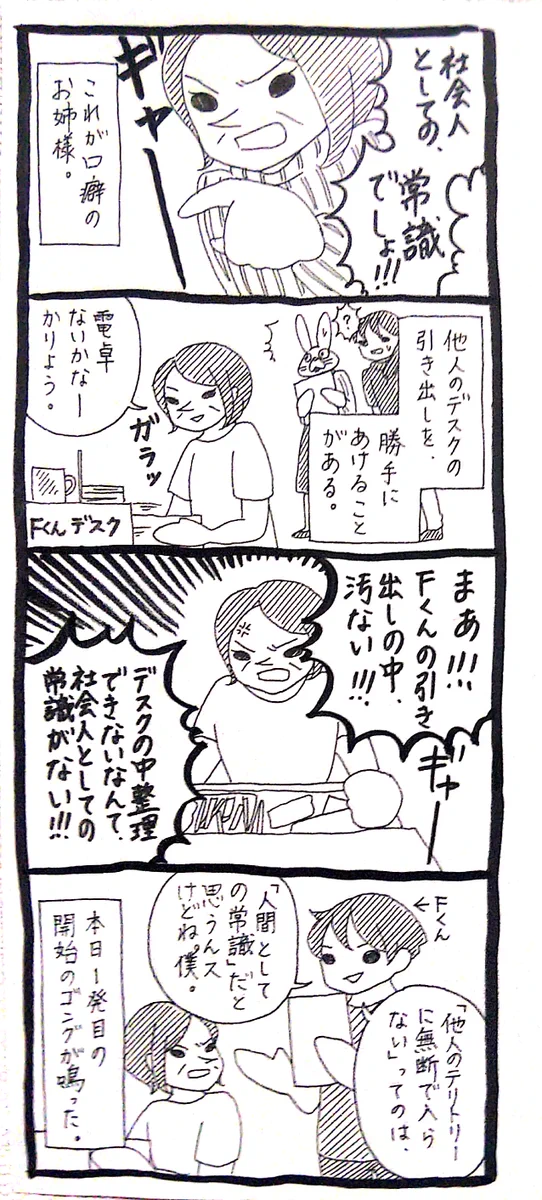 社会人
としての、
常識
でしょ!!!
ギャー
これが口癖の
お姉様。
他人のデスクの
引き出しを、
勝手に
あけること
がある。
?
電卓
ないかなー
かりよう。
ガラッ
Fくんデスク
まあ!!!
Fくんの引き
出しの中、
汚ない!!!
ギャー
デスクの中整理
できないなんて、
社会人としての
常識がない!!!
←Fくん
「他人のテリトリー
に無断で入ら
ない」ってのは、
「人間として
の常識」だと
思うんス
けどね。僕。
本日1発目の
開始のゴングが鳴った。